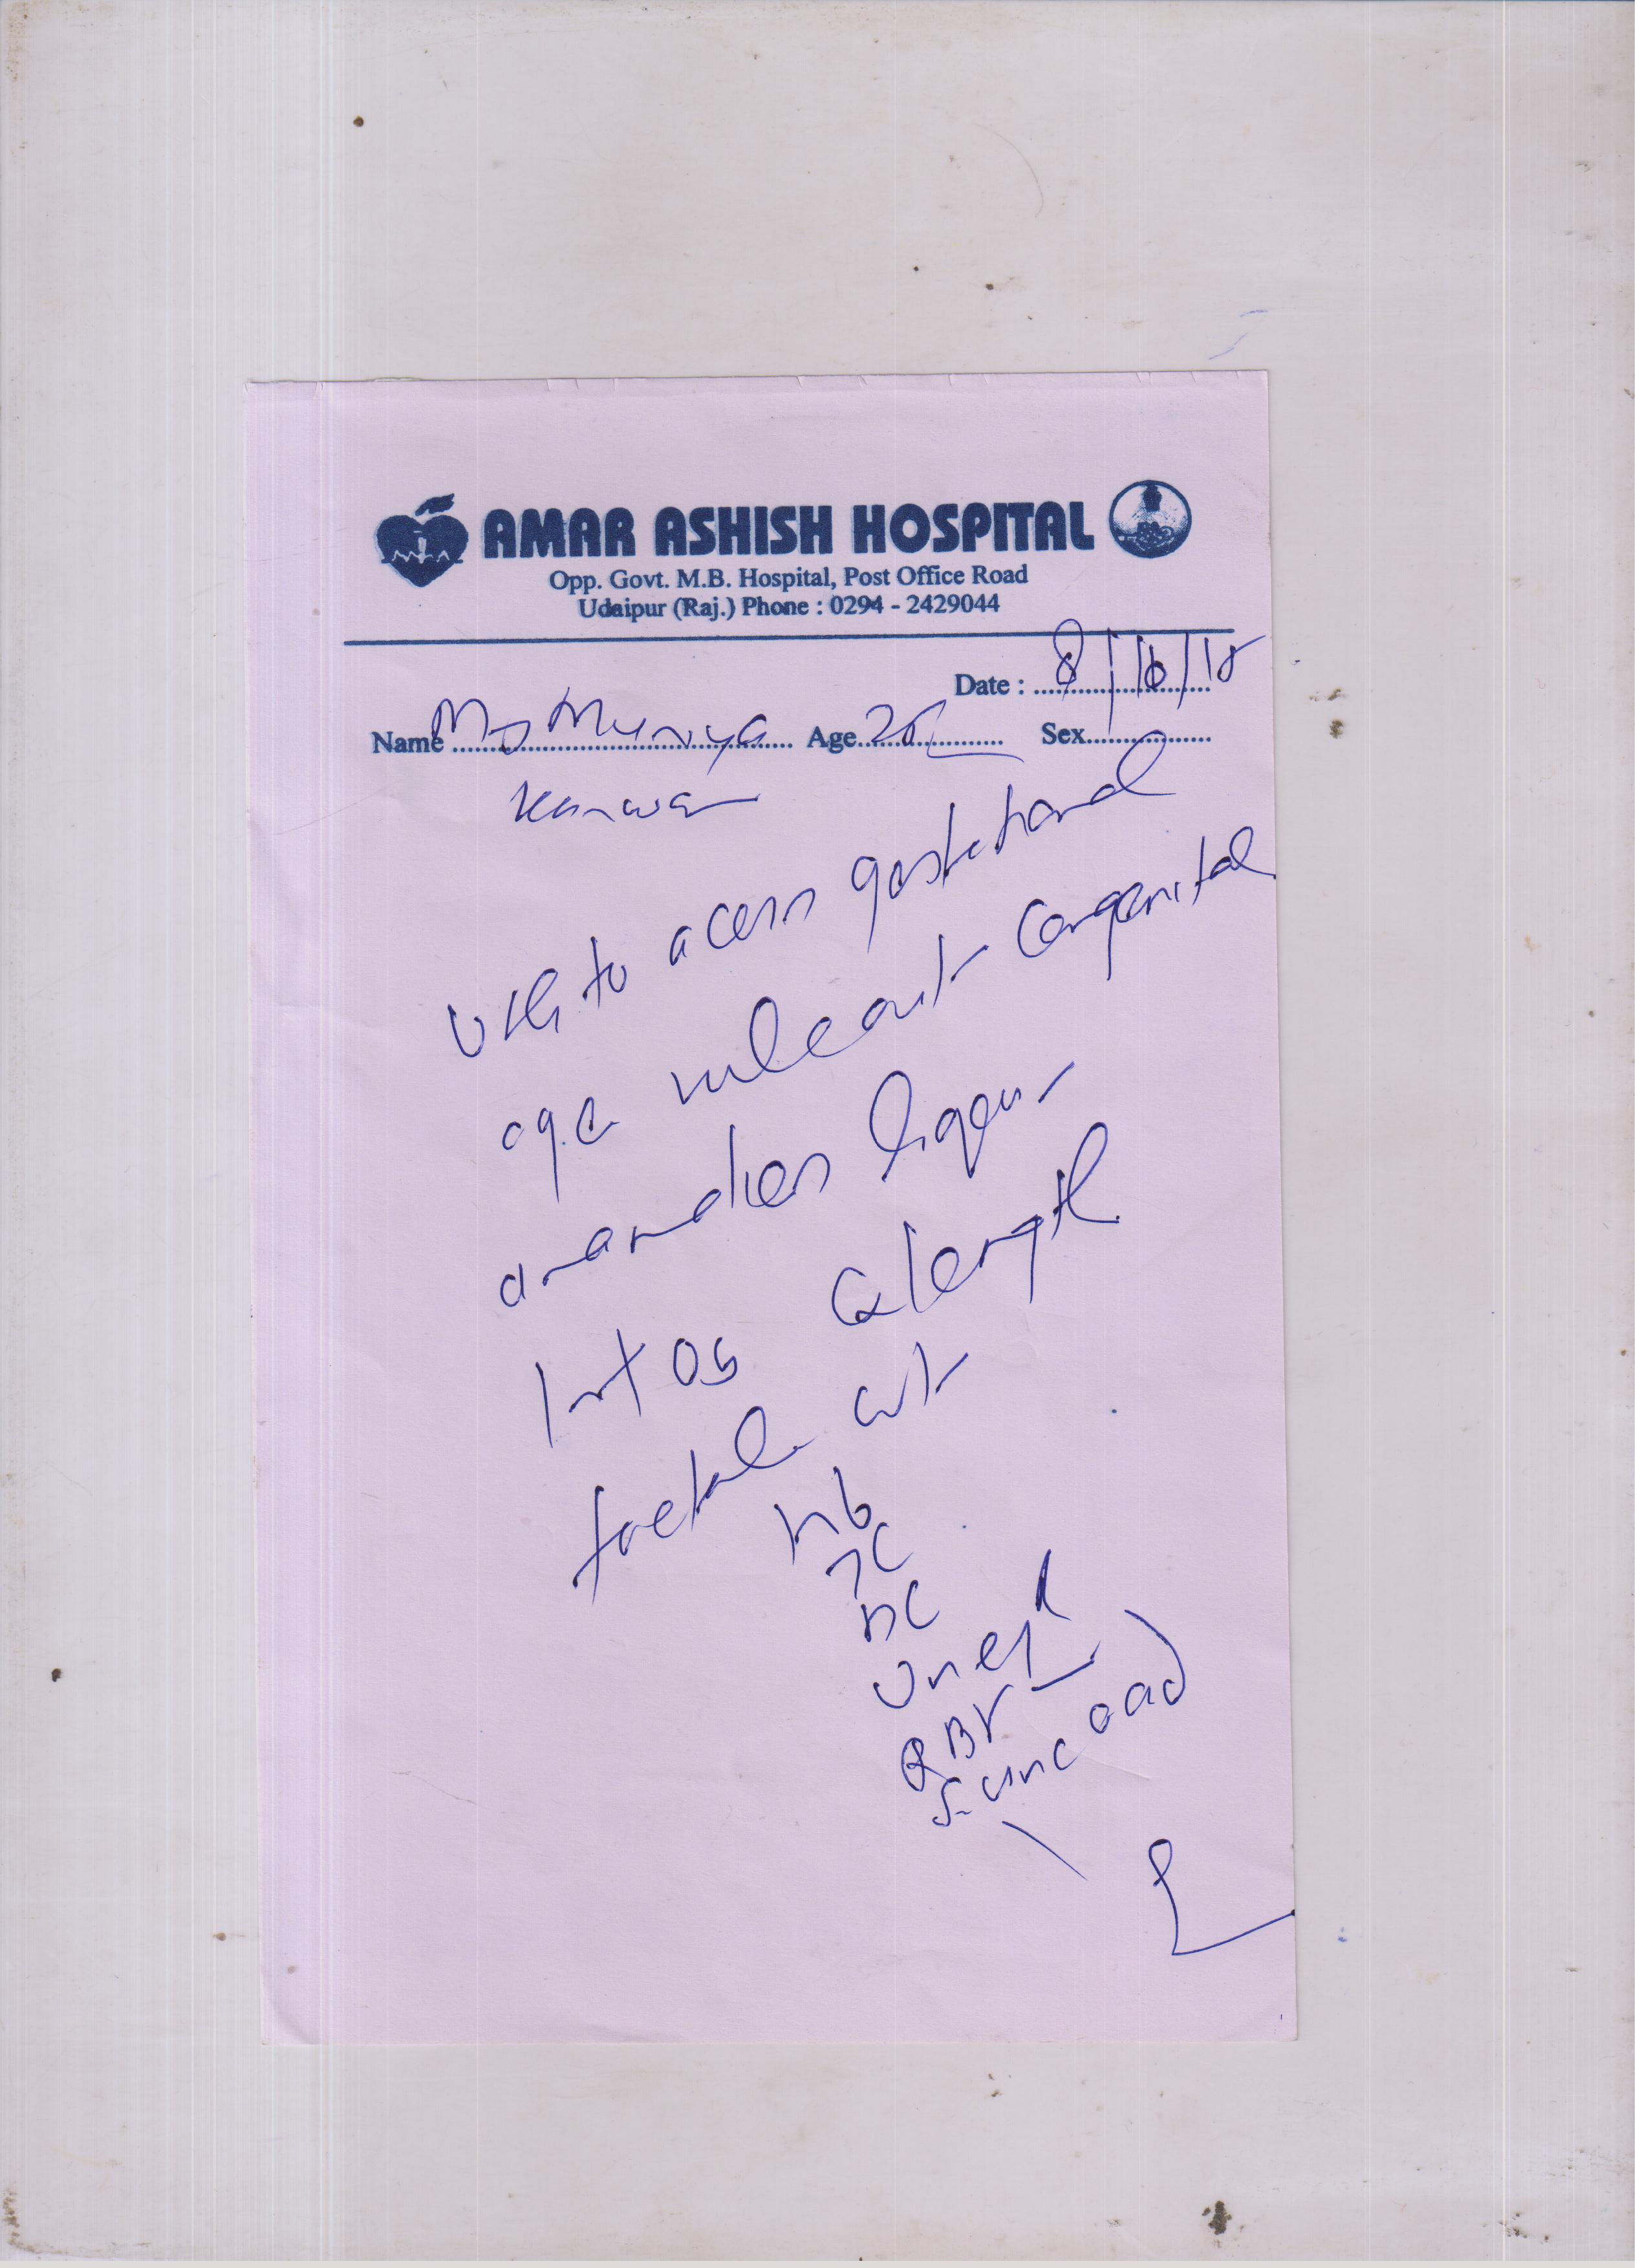 AMAR ASHISH HOSPITAL
Opp. Govt. M.B. Hospital, Post Office Road
Udaipur (Raj.) Phone : 0294 - 2429044
Date : 8/10/15
Name Age Sex
Kanwar
USG to acess gestational
age ruleout congenital
anamolies liquor
Int Os Cx length
foetal wt
Hb
TC
DC
Urine
RBS